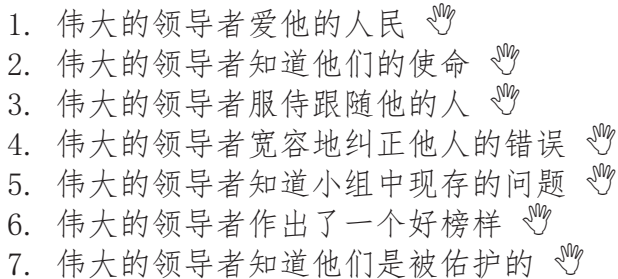 1. 伟大的领导者爱他的人民 👋
2. 伟大的领导者知道他们的使命 👋
3. 伟大的领导者服侍跟随他的人 👋
4. 伟大的领导者宽容地纠正他人的错误 👋
5. 伟大的领导者知道小组中现存的问题 👋
6. 伟大的领导者作出了一个好榜样 👋
7. 伟大的领导者知道他们是被佑护的 👋